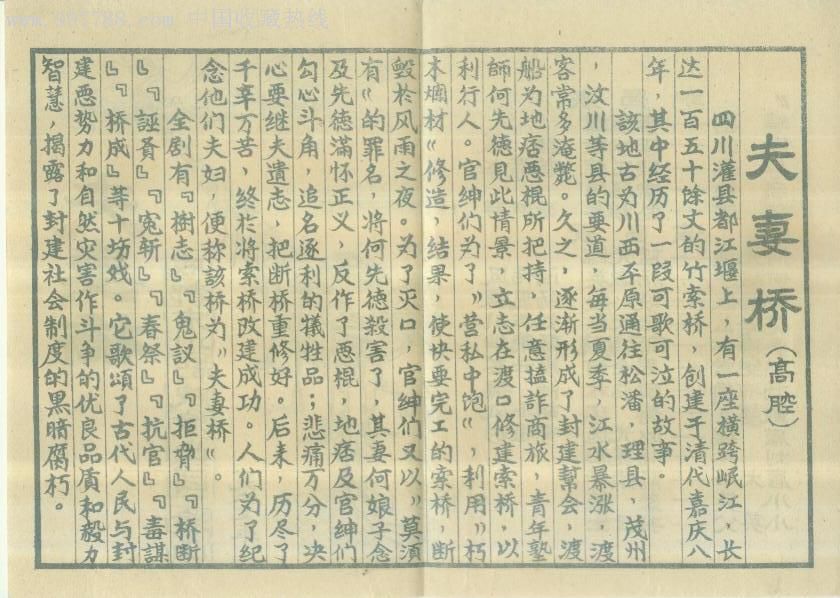 www.997788.com 中国收藏热线
夫妻桥（高腔）
四川灌县都江堰上，有一座横跨岷江、长
达一百五十馀丈的竹索桥，创建于清代嘉庆八
年，其中经历了一段可歌可泣的故事。
該地古为川西平原通往松潘，理县，茂州
，汶川等县的要道，每当夏季，江水暴涨，渡
客常多淹斃。久之，逐渐形成了封建幫会，渡
船为地痞恶棍所把持，任意搕詐商旅，青年塾
師何先德見此情景，立志在渡口修建索桥，以
利行人。官绅们为了〃营私中饱〃，利用〃朽
木爛材〃修造，结果，使快要完工的索桥，断
毁於风雨之夜。为了灭口，官绅们又以〃莫須
有〃的罪名，将何先德殺害了，其妻何娘子念
及先德滿怀正义，反作了恶棍，地痞及官绅们
勾心斗角，追名逐利的犠牲品；悲痛万分，决
心要继夫遗志，把断桥重修好。后来，历尽了
千辛万苦，终於将索桥改建成功。人们为了纪
念他们夫妇，便称该桥为〃夫妻桥〃。
全剧有『樹志』『鬼議』『拒脅』『桥断
』『誣賚』『冤斩』『春祭』『抗官』『毒謀
』『桥成』等十場戏。它歌頌了古代人民与封
建恶势力和自然灾害作斗争的优良品质和毅力
智慧，揭露了封建社会制度的黑暗腐朽。